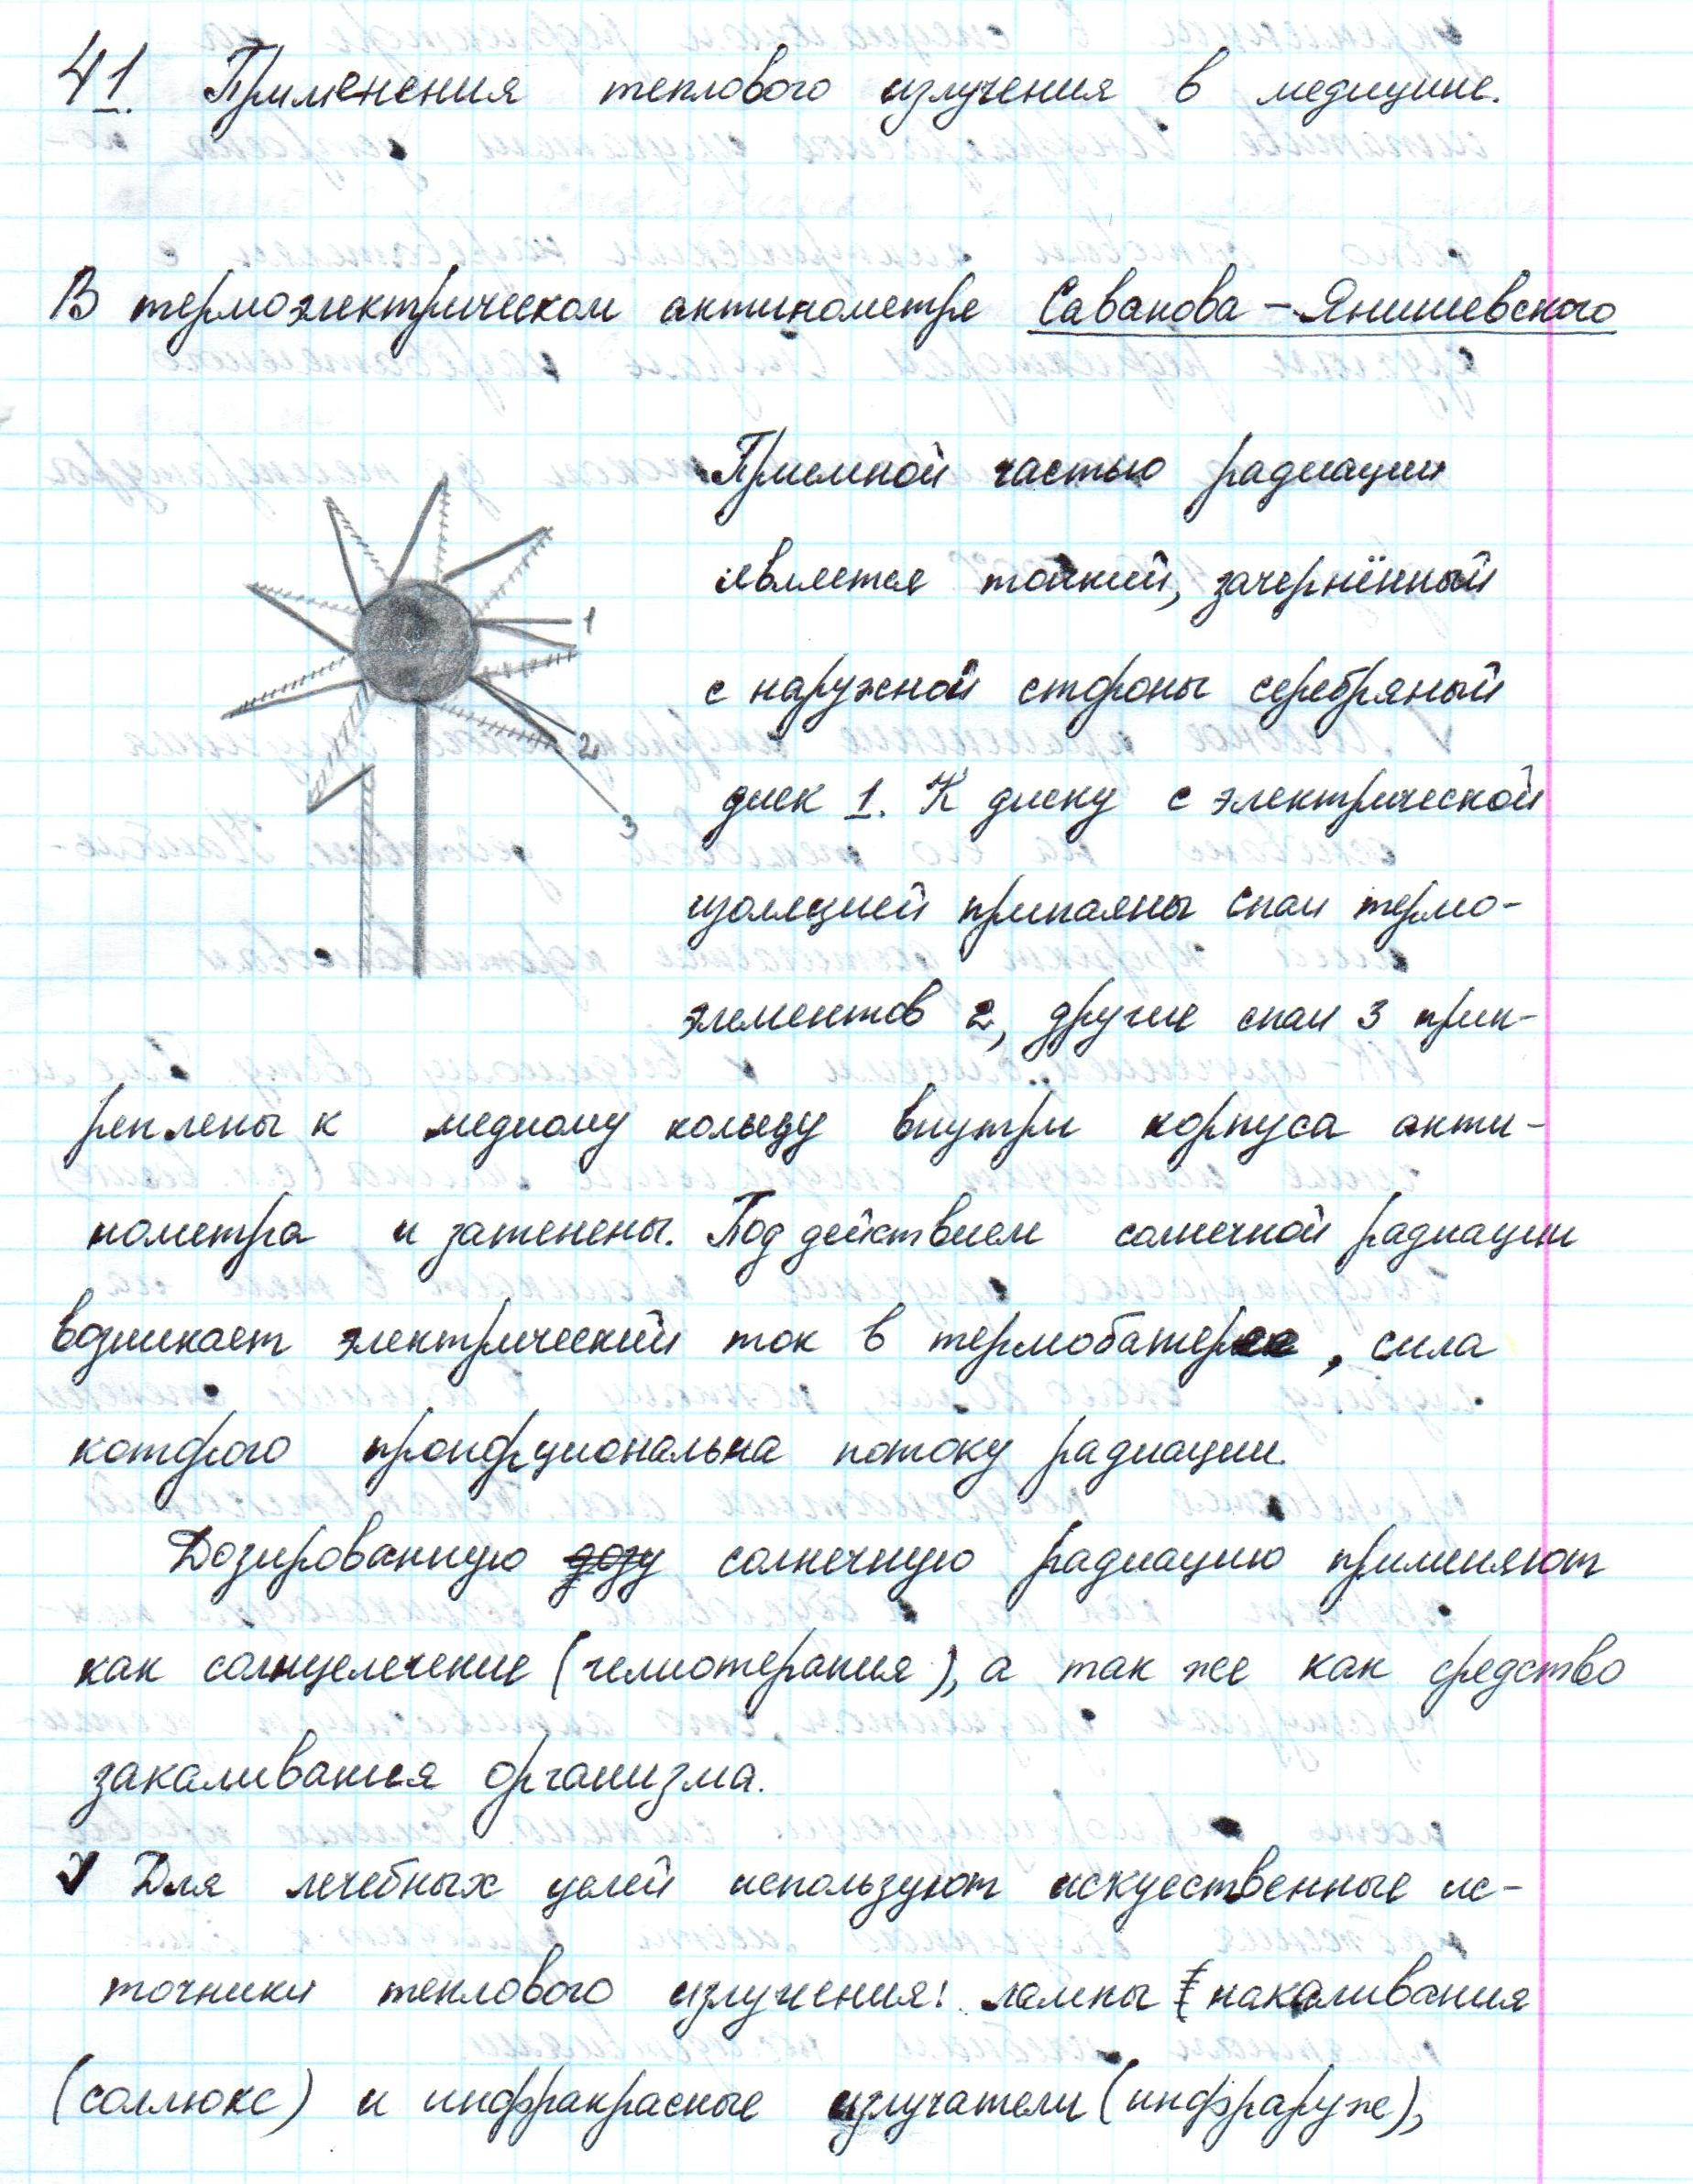 41. Применения теплового излучения в медицине.
В термоэлектрическом актинометре Саванова – Янишевского
Приемной частью радиации
является тонкий, зачернённый
с наружной стороны серебряный
диск 1. К диску с электрической
изоляцией припаяны спаи термо-
элементов 2, другие спаи 3 прик-
реплены к медному кольцу внутри корпуса акти-
нометра и затенены. Под действием солнечной радиации
возникает электрический ток в термобатерее, сила
которого пропорциональна потоку радиации.
Дозированную дозу солнечную радиацию применяют
как солнцелечение (гелиотерапия), а так же как средство
закаливания организма.
✓ Для лечебных целей используют искуственные ис-
точники теплового излучения: лампы накаливания
(соллюкс) и инфракрасные излучатели (инфраруже),
1
2
3